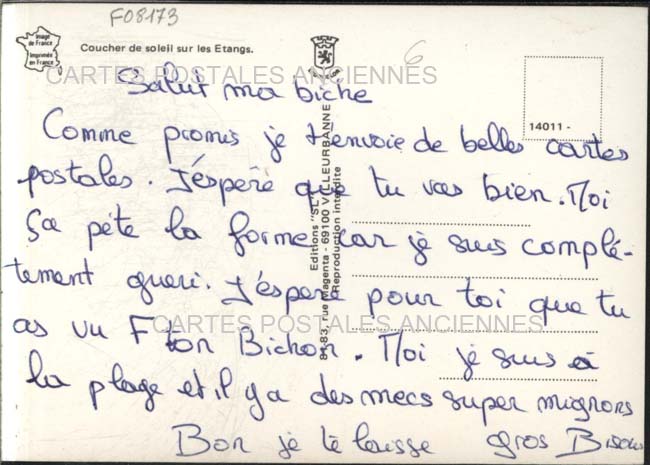 F08173
Image de France
Imprimée en France
Coucher de soleil sur les Etangs.
6
CARTES POSTALES ANCIENNES
14011 -
Salut ma biche
Comme promis je t'envoie de belles cartes
postales. J'éspere que tu vas bien. Moi
Sa pète la forme car je suis complé-
tement gueri. J'éspere pour toi que tu
as vu F ton Bichon. Moi je suis à
la plage et il y a des mecs super mignons
Bon je te laisse gros Bisous
CARTES POSTALES ANCIENNES
Editions "SL"
81-83, rue Magenta - 69100 VILLEURBANNE
Reproduction interdite